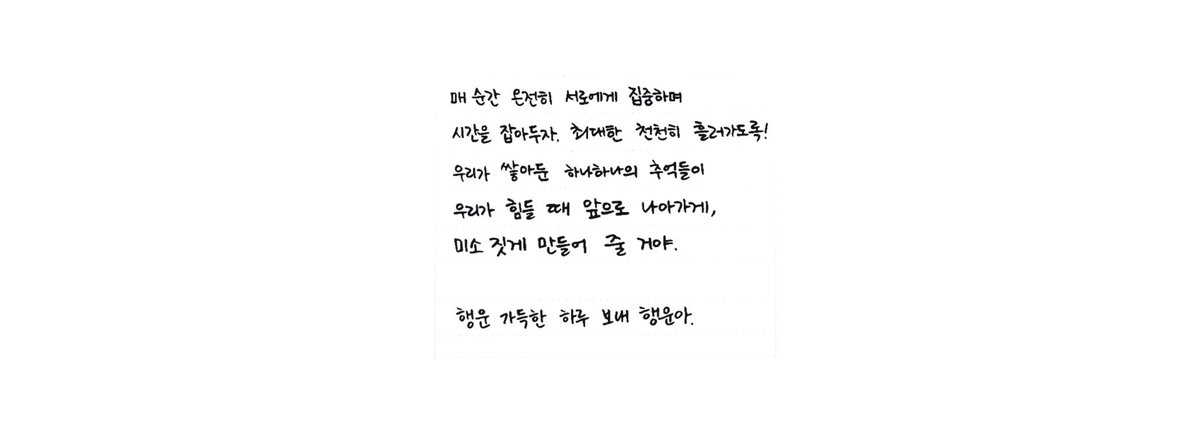 매 순간 온전히 서로에게 집중하며
시간을 잡아두자. 최대한 천천히 흘러가도록!
우리가 쌓아둔 하나하나의 추억들이
우리가 힘들 때 앞으로 나아가게,
미소 짓게 만들어 줄 거야.
행운 가득한 하루 보내 행운아.